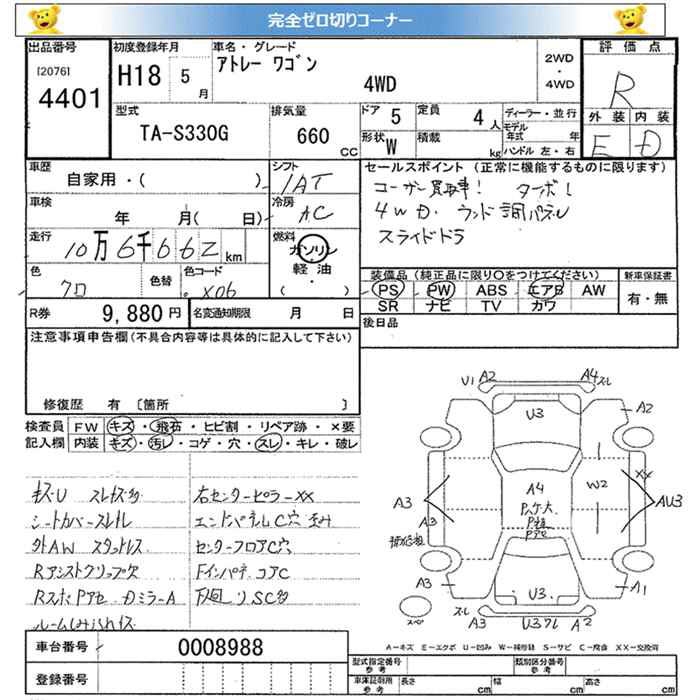 完全ゼロ切りコーナー
出品番号 初度登録年月 車名・グレード 評価点
[2076]
4401
H18 5月
アトレー ワゴン
4WD
2WD
・
4WD
R
型式 排気量 ドア 5 定員 4人 ディーラー・並行
TA-S330G 660cc
形状 W 積載 kg
モデル年式 年
ハンドル 左・右
外装 内装
E D
車歴 シフト セールスポイント (正常に機能するものに限ります)
自家用・( ) IAT
コーナー買取車! ターボ!
車検 年 月( 日) 冷房 AC
4WD. ウッド調パネル
走行 10万6千662km 燃料 ガソリン
スライドドラ
軽油
( ・ )
色 色替 色コード
クロ X06
装備品 (純正品に限り○をつけてください) 新車保証書
PS PW ABS エアB AW 有・無
SR ナビ TV カワ
R券 9,880円 名変通知期限 月 日
後日品
注意事項申告欄 (不具合内容等は具体的に記入して下さい)
修復歴 有 [箇所 ]
検査員 FW キズ・飛石・ヒビ割・リペア跡・×要
記入欄 内装 キズ・汚レ・コゲ・穴・スレ・キレ・破レ
キズU スレキズ多 右センターピラーXX
シートカバースレル エンドパネルC穴 歪み
外AW スタッドレス センターフロアC穴
Rアシストグリップ欠 FインパネコアC
DミラーA 下廻りSC多
U1 A2 A4 スレ
U3 A2
A3 A3 A4 W2 XX AU3
Pッケ大
A3 U3 A1
スペ スレ A3 U3ワレ A2
車台番号 0008988
登録番号
A-キズ E-エクボ U-凹み W-補修跡 S-サビ C-腐食 XX-交換済
型式指定番号 参考 類別区分番号 参考
車庫証明用 参考 長さ cm 幅 cm 高さ cm